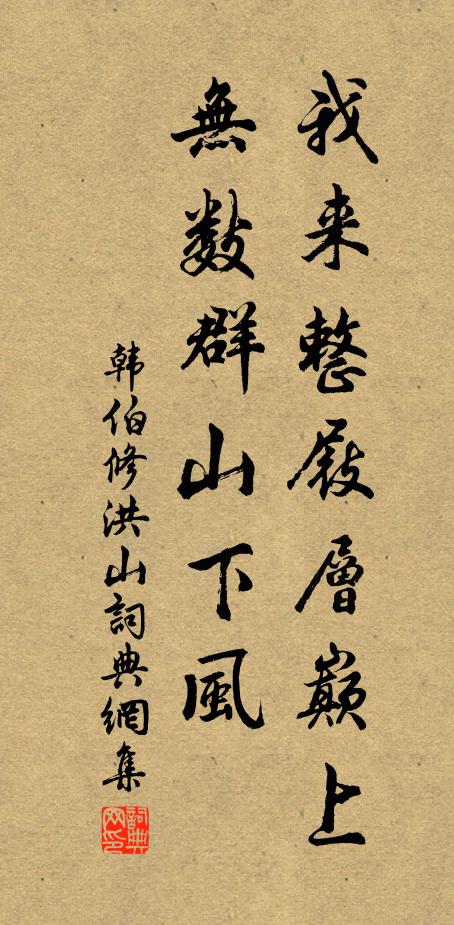 我来整屐層巔上
無数群山下風
韩伯修洪山詞典網集
詞典网印